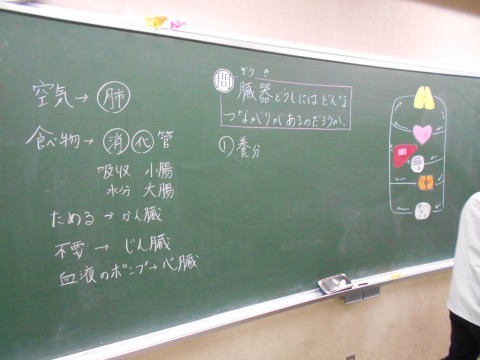 空気→肺
食べ物→消化管
吸収 小腸
水分 大腸
ためる→かん臓
不要→じん臓
血液のポンプ→心臓
問
ぞう き
臓器どうしにはどんな
つながりがあるのだろうか。
① 養分